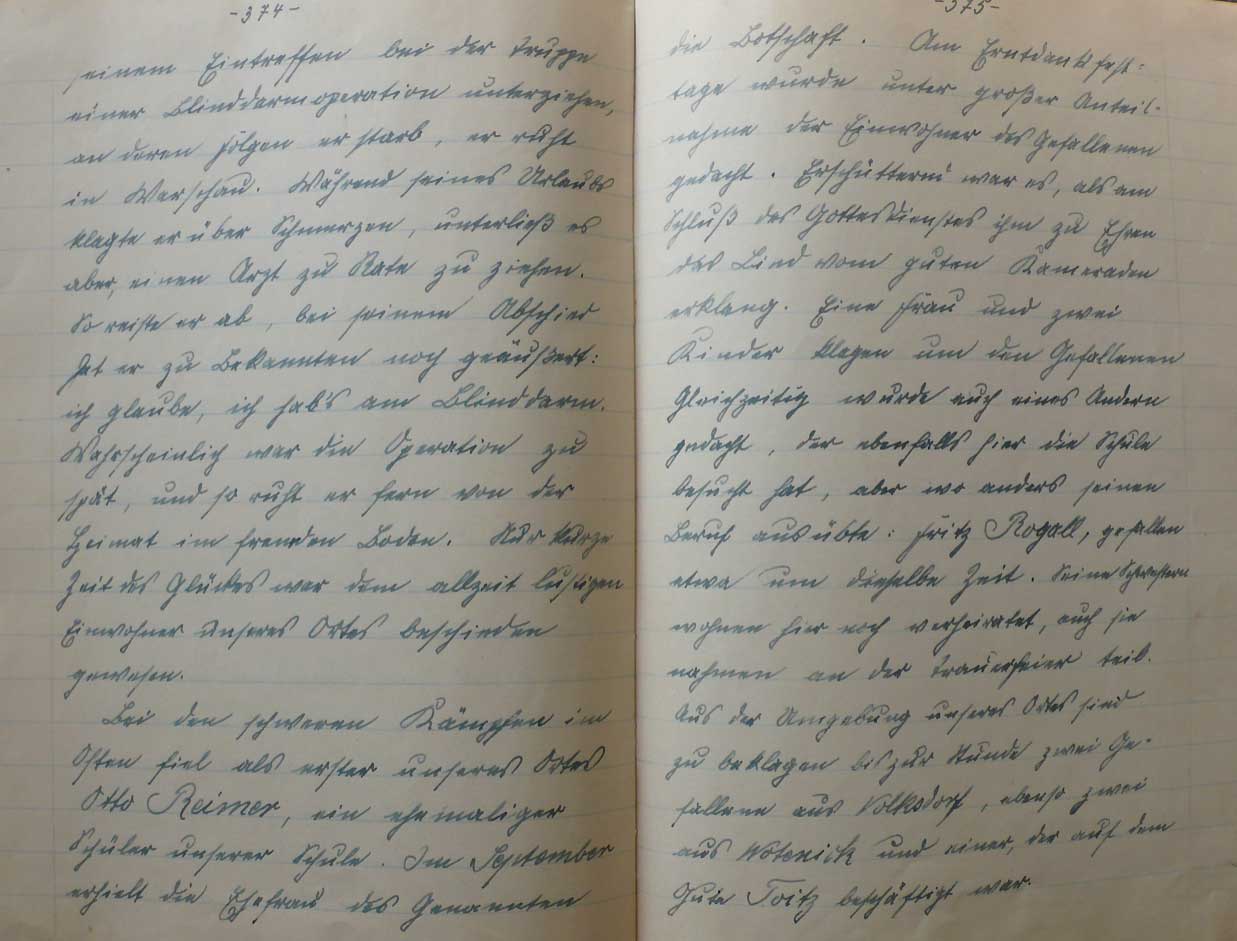 -374-
seinem Eintreffen bei der Truppe
einer Blinddarmoperation unterziehen,
an deren Folgen er starb, er ruht
in Warschau. Während seines Urlaubs
klagte er über Schmerzen, unterließ es
aber, einen Arzt zu Rate zu ziehen.
So reiste er ab, bei seinem Abschied
hat er zu Bekannten noch geäußert:
ich glaube, ich hab's am Blinddarm.
Wahrscheinlich war die Operation zu
spät, und so ruht er fern von der
Heimat im fremden Boden. Nur kurze
Zeit des Glückes war dem allzeit lustigen
Einwohner unseres Ortes beschieden
gewesen.
Bei den schweren Kämpfen im
Osten fiel als erster unseres Ortes
Otto Reimer, ein ehemaliger
Schüler unserer Schule. Im September
erhielt die Ehefrau des Genannten
-375-
die Botschaft. Am Erntdankfest-
tage wurde unter großer Anteil-
nahme der Einwohner des Gefallenen
gedacht. Erschütternd war es, als am
Schluß des Gottesdienstes ihm zu Ehren
das Lied vom guten Kameraden
erklang. Eine Frau und zwei
Kinder klagen um den Gefallenen
Gleichzeitig wurde auch eines Andern
gedacht, der ebenfalls hier die Schule
besucht hat, aber wo anders seinen
Beruf ausübte: Fritz Rogall, gefallen
etwa um dieselbe Zeit. Seine Schwestern
wohnen hier noch verheiratet, auch sie
nahmen an der Trauerfeier teil.
Aus der Umgebung unseres Ortes sind
zu beklagen bis zur Stunde zwei Ge-
fallene aus Volksdorf, ebenso zwei
aus Wotenick und einer, der auf dem
Gute Toitz beschäftigt war.